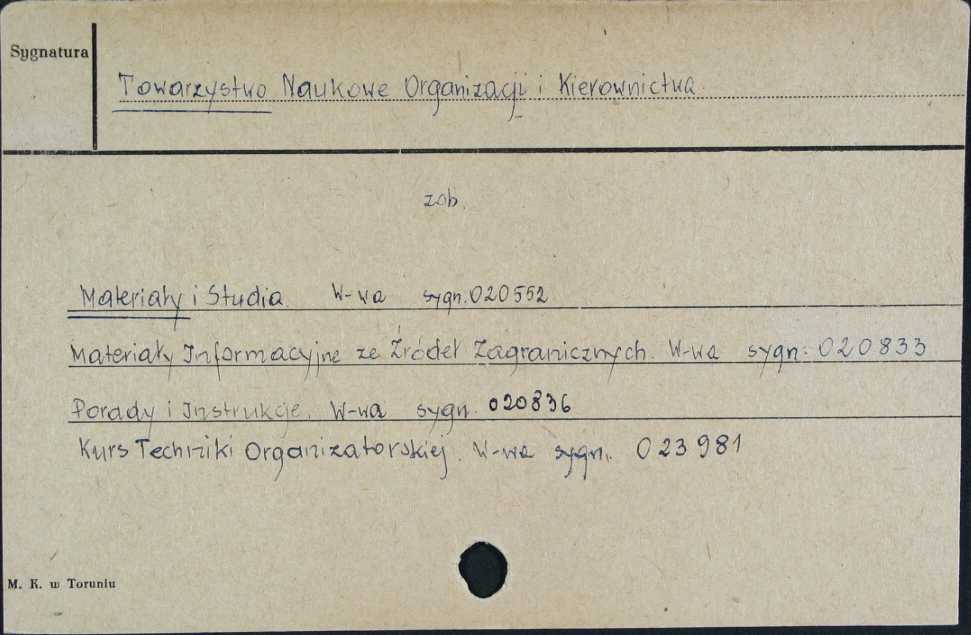 Sygnatura
Towarzystwo Naukowe Organizacji i Kierownictwa
zob.
Materiały i Studia. W-wa sygn. 020552
Materiały Informacyjne ze Źródeł Zagranicznych. W-wa sygn: 020833
Porady i Instrukcje. W-wa sygn. 020836
Kurs Techniki Organizatorskiej. W-wa sygn. 023981
M. K. w Toruniu